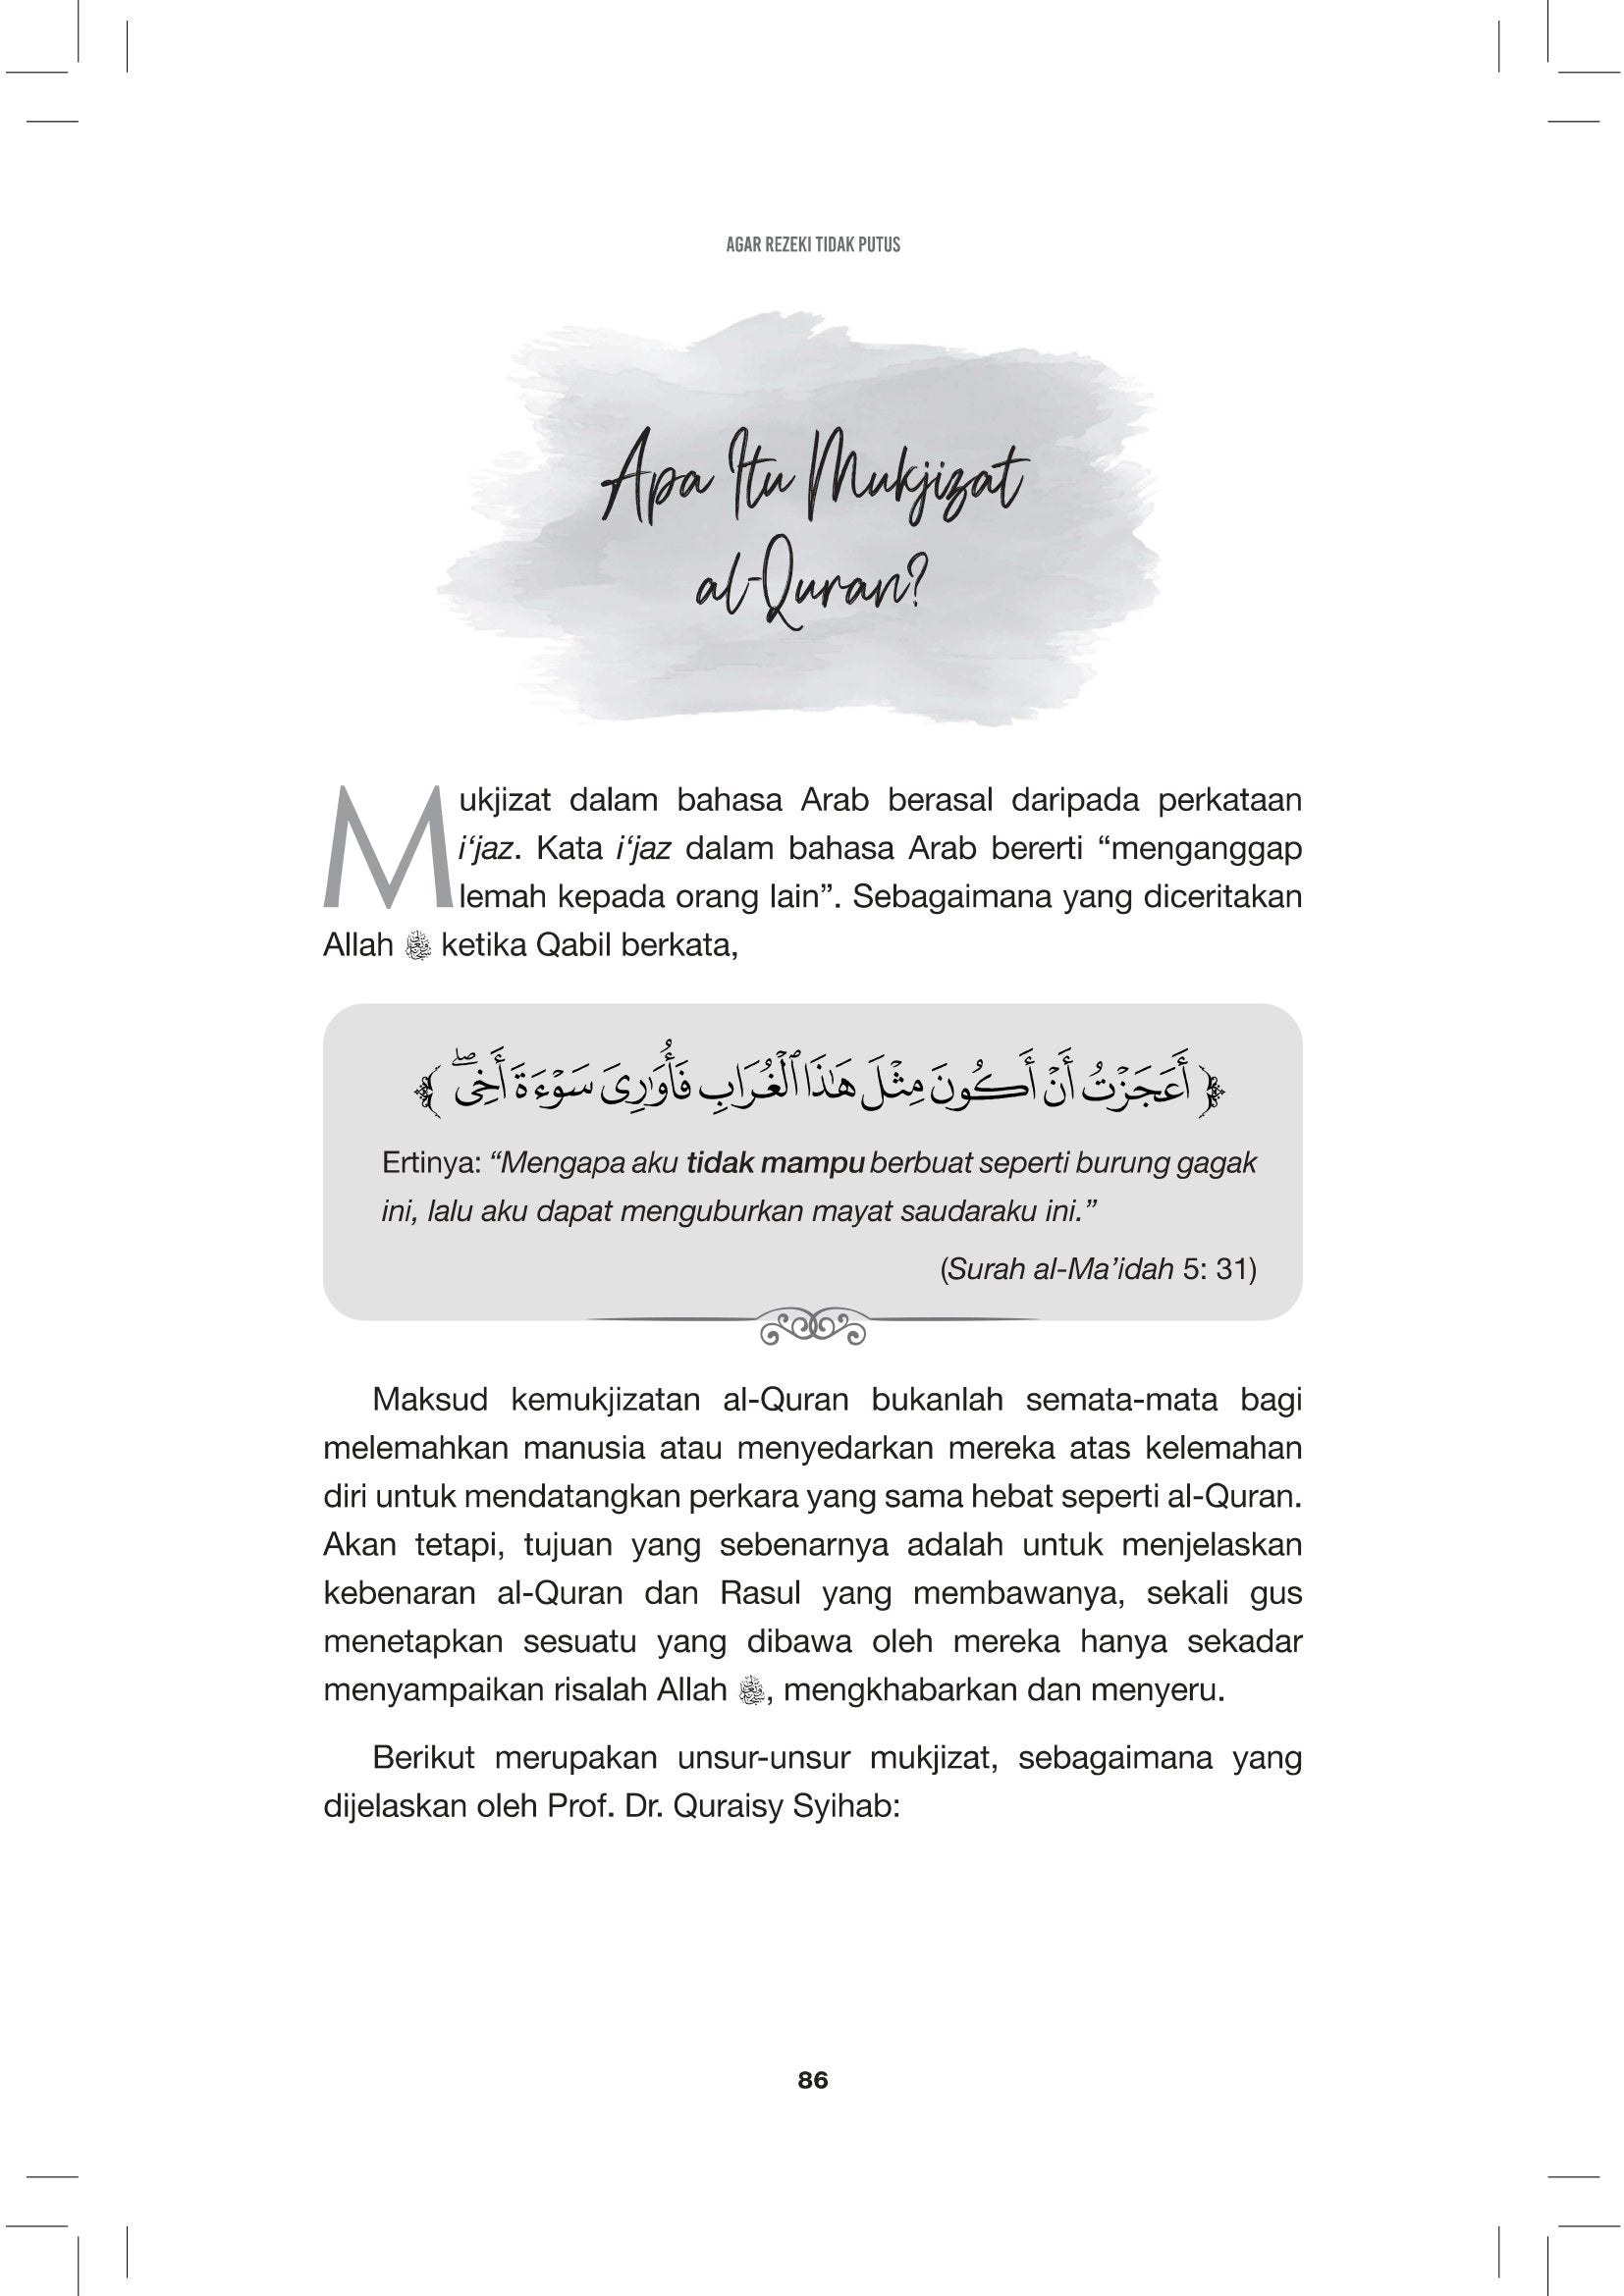 AGAR REZEKI TIDAK PUTUS
Apa Itu Mukjizat
al-Quran?
Mukjizat dalam bahasa Arab berasal daripada perkataan
i‘jaz. Kata i‘jaz dalam bahasa Arab bererti “menganggap
lemah kepada orang lain”. Sebagaimana yang diceritakan
Allah ﷻ ketika Qabil berkata,
﴿ أَعَجَزْتُ أَنْ أَكُونَ مِثْلَ هَـٰذَا ٱلْغُرَابِ فَأُوَٰرِىَ سَوْءَةَ أَخِىۖ ﴾
Ertinya: “Mengapa aku tidak mampu berbuat seperti burung gagak
ini, lalu aku dapat menguburkan mayat saudaraku ini.”
(Surah al-Ma’idah 5: 31)
Maksud kemukjizatan al-Quran bukanlah semata-mata bagi
melemahkan manusia atau menyedarkan mereka atas kelemahan
diri untuk mendatangkan perkara yang sama hebat seperti al-Quran.
Akan tetapi, tujuan yang sebenarnya adalah untuk menjelaskan
kebenaran al-Quran dan Rasul yang membawanya, sekali gus
menetapkan sesuatu yang dibawa oleh mereka hanya sekadar
menyampaikan risalah Allah ﷻ, mengkhabarkan dan menyeru.
Berikut merupakan unsur-unsur mukjizat, sebagaimana yang
dijelaskan oleh Prof. Dr. Quraisy Syihab:
86